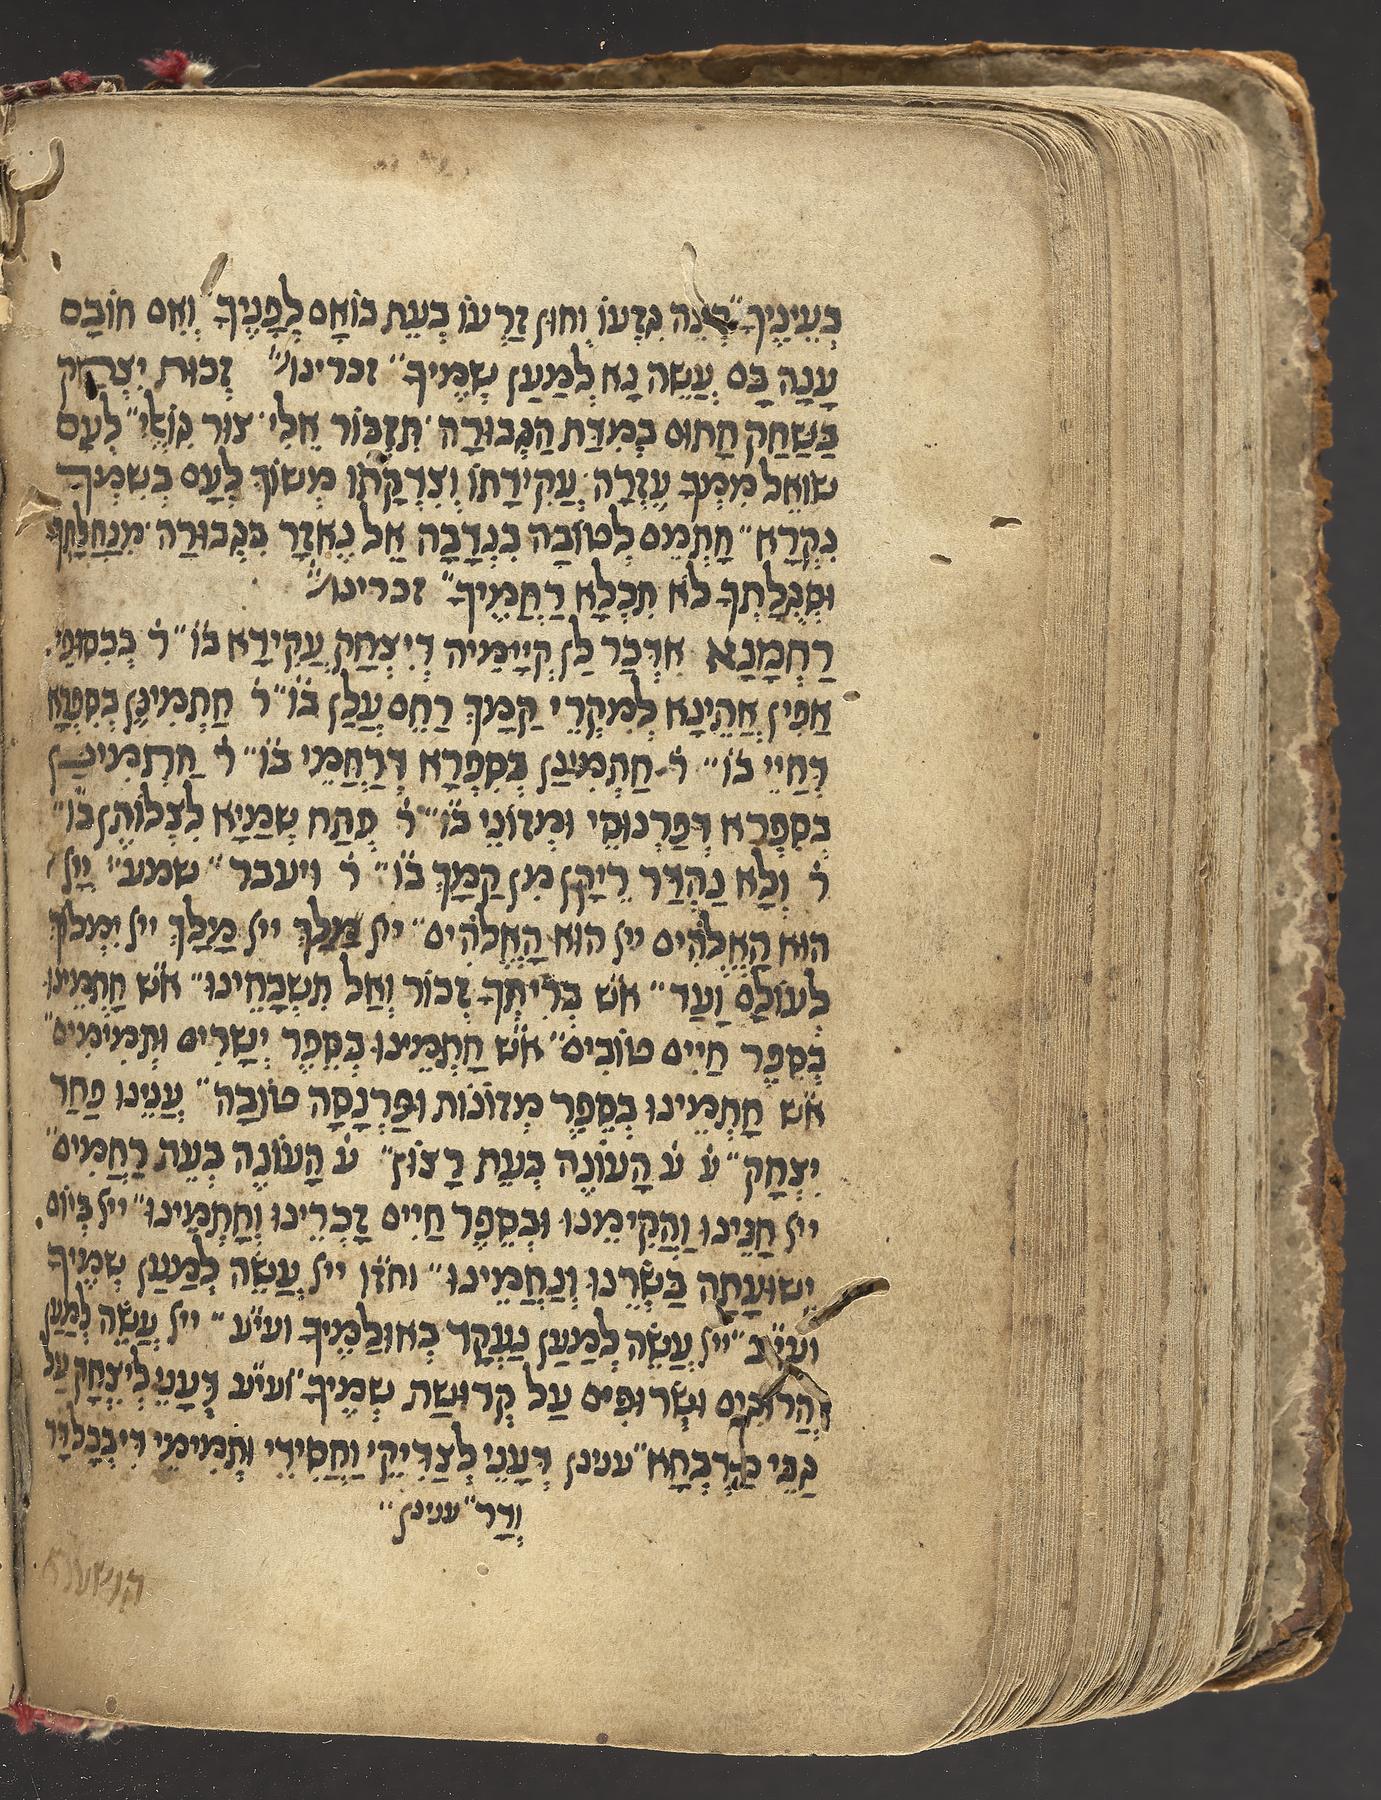 בְּעֵינֶיךָ״ רְצֵה גִזְעוֹ וְחוּן זַרְעוֹ בְּעֵת בּוֹאָם לְפָנֶיךָ וְאִם חוֹבָם
עָנָה בָם עֲשֵׂה נָא לְמַעַן שְׁמֶיךָ״ זכרינו״ זְכוּת יִצְחָק
בַּשַּׁחַק חָתוּם בְּמִדַּת הַגְּבוּרָה תִּזְכּוֹר אֵלִי צוּר גּוֹאֲלִי״ לְעַם
שׁוֹאֵל מִמְּךָ עֶזְרָה עֲקֵידָתוֹ וְצִדְקָתוֹ מְשׁוֹךְ לְעַם בְּשִׁמְךָ
נִקְרָא״ חָתְמֵם לְטוֹבָה בִּנְדָבָה אֵל נֶאְזָר בִּגְבוּרָה מִנַּחֲלָתְךָ
וּסְגֻלָּתְךָ לֹא תִכְלָא רַחֲמֶיךָ״ זכרינו״
רַחְמָנָא אִדְכַר לַן קְיָימֵיהּ דְּיִצְחָק עֲקֵידָא בו״ ר בְּכִסּוּפֵי
אַפִּין אֲתֵינָא לְמִקְרֵי קַמָּךְ רַחֵם עֲלַן בו״ ר חַתְמִינַן בְּסִפְרָא
דְּחַיֵּי בו״ ר חַתְמִינַן בְּסִפְרָא דְּרַחֲמֵי בו״ ר חַתְמִינַן
בְּסִפְרָא דְפַרְנוּסֵי וּמְזוֹנֵי בו״ ר פְּתַח שְׁמַיָּא לִצְלוֹתַן בו״
ר וְלָא נַהְדַּר רֵיקָן מִן קַמָּךְ בו״ ר ויעבר״ שמע״ יְיָ
הוּא הָאֱלֹהִים ייי הוּא הָאֱלֹהִים״ ייי מֶלֶךְ ייי מָלָךְ ייי יִמְלוֹךְ
לְעוֹלָם וָעֶד״ אש בְּרִיתְךָ זְכוֹר וְאַל תִּשְׁכָּחֵינוּ״ אש חָתְמֵינוּ
בְּסֵפֶר חַיִּים טוֹבִים״ אש חָתְמֵינוּ בְּסֵפֶר יְשָׁרִים וּתְמִימִים״
אש חָתְמֵינוּ בְּסֵפֶר מְזוֹנוֹת וּפַרְנָסָה טוֹבָה״ עֲנֵינוּ פַּחַד
יִצְחָק״ ע ע הָעוֹנֶה בְּעֵת רָצוֹן״ ע הָעוֹנֶה בְּעֵת רַחֲמִים״
ייי חָנֵּינוּ וַהֲקִימֵנוּ וּבְסֵפֶר חַיִּים זָכְרֵינוּ וְחָתְמֵינוּ״ ייי בְּיוֹם
יְשׁוּעָתָהּ בַּשְּׂרֵנוּ וְנַחֲמֵינוּ״ ייי עֲשֵׂה לְמַעַן שְׁמֶיךָ
ייי עֲשֵׂה לְמַעַן נֶעְקָד בְּאוּלַמֶּיךָ ועיע״ ייי עֲשֵׂה לְמַעַן
הֲרוּגִים וּשְׂרוּפִים עַל קְדוּשַּׁת שְׁמֶיךָ״ ועיע דְּעָנֵי לְיִצְחָק עַל
גַּבֵּי מַדְבְּחָא״ ענינן דְּעָנֵי לְצַדִּיקֵי וַחֲסִידֵי וּתְמִימֵי דִּבְכָל דָּר
וְדַר״ ענינן״
הושענא